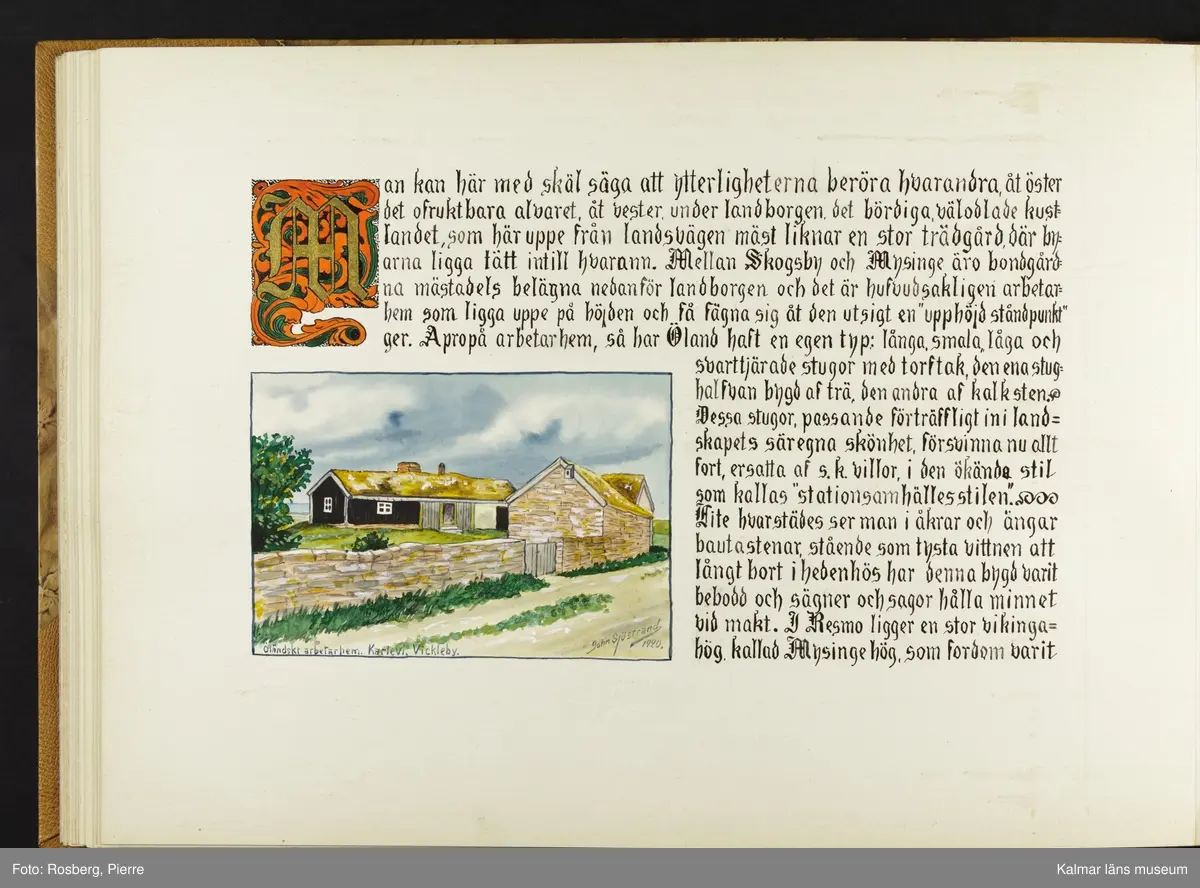 Man kan här med skäl säga att ytterligheterna beröra hvarandra, åt öster
det ofruktbara alvaret, åt vester, under landborgen, det bördiga, välodlade kust-
landet, som här uppe från landsvägen mäst liknar en stor trädgård, där by-
arna ligga tätt intill hvarann. Mellan Skogsby och Mysinge äro bondgård-
na mästadels belägna nedanför landborgen och det är hufvudsakligen arbetar-
hem som ligga uppe på höjden och få fägna sig åt den utsigt en "upphöjd ståndpunkt"
ger. Apropå arbetarhem, så har Öland haft en egen typ: långa, smala, låga och
svarttjärade stugor med torftak, den ena stug-
halfvan bygd af trä, den andra af kalksten.
Dessa stugor, passande förträffligt in i land=
skapets säregna skönhet, försvinna nu allt
fort, ersatta af s.k. villor, i den ökända stil
som kallas "stationsamhällesstilen".
Lite hvarstädes ser man i åkrar och ängar
bautastenar, stående som tysta vittnen att
långt bort i hedenhös har denna bygd varit
bebodd och sägner och sagor hålla minnet
vid makt. I Resmo ligger en stor vikinga=
hög, kallad Mysinge hög, som fordom varit
Öländskt arbetarhem. Karlevi, Vickleby.
John Sjöstrand
1920.
Foto: Rosberg, Pierre
Kalmar läns museum